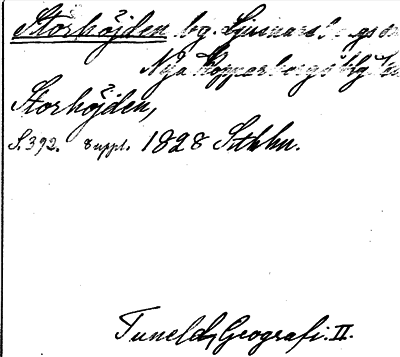 Storhöjden bg. Ljusnarsbergs sn
Nya Kopparbergs blg
Storhöjden,
S. 392. suppl. 1828 Sthlm.
Tuneld, Geografi. II.